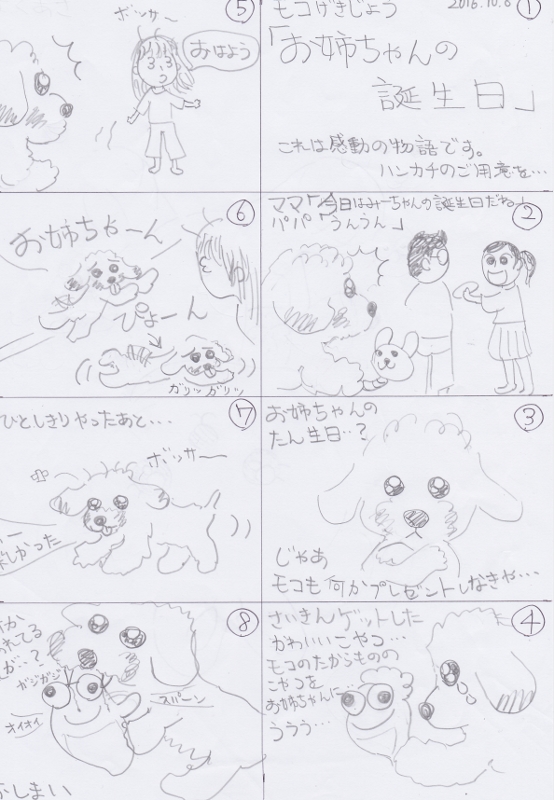 ①
モコげきじょう
2016.10.6
「お姉ちゃんの
誕生日」
これは感動の物語です。
ハンカチのご用意を…
②
ママ「今日はみーちゃんの誕生日だね」
パパ「うんうん」
③
お姉ちゃんの
たん生日‥?
じゃあ
モコも何かプレゼントしなきゃ…
④
さいきんゲットした
かわいいこやつ…
モコのたからものの
こやつを
お姉ちゃんに…
ううう…
⑤
ボッサ〜
おはよう
⑥
お姉ちゃーん
ぴょーん
ガリッガリッ
⑦
ひとしきりやったあと…
ボッサ〜
しかった
⑧
れてる
が‥?
ガジガジ
スパーン
オイオイ
しまい